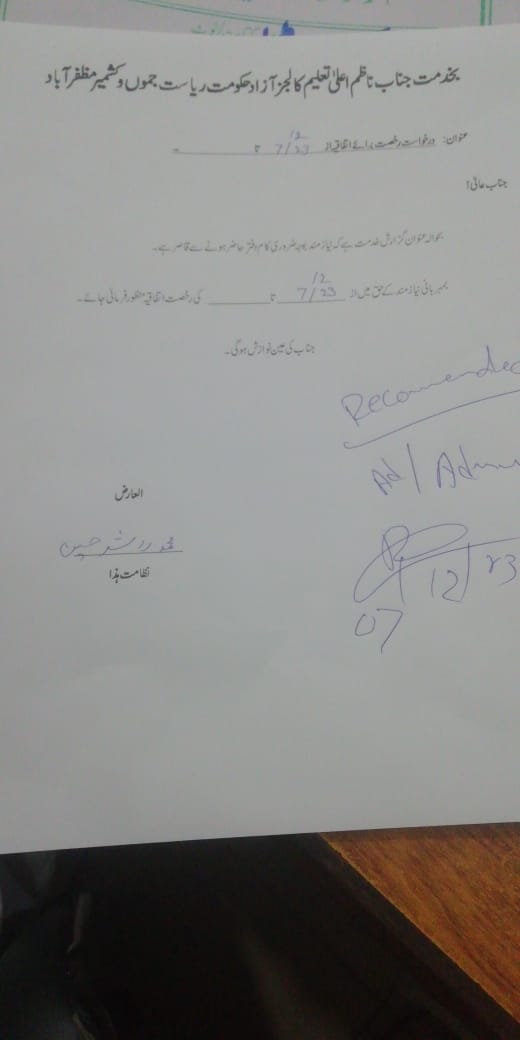 بخدمت جناب ناظم اعلیٰ تعلیم کالجز آزاد حکومت ریاست جموں و کشمیر مظفرآباد
عنوان: درخواست رخصت برائے اتفاقیہ از 7/12/23 تا
جناب عالی!
بحوالہ عنوان گزارش خدمت ہے کہ نیازمند بوجہ ضروری کام دفتر حاضر ہونے سے قاصر ہے۔
بمہربانی نیازمند کے حق میں از 7/12/23 تا کی رخصت اتفاقیہ منظور فرمائی جائے۔
جناب کی عین نوازش ہوگی۔
Recomended
Ad/Admn
07/12/23
العارض
محمد راشد حسین
نظامت ہذا